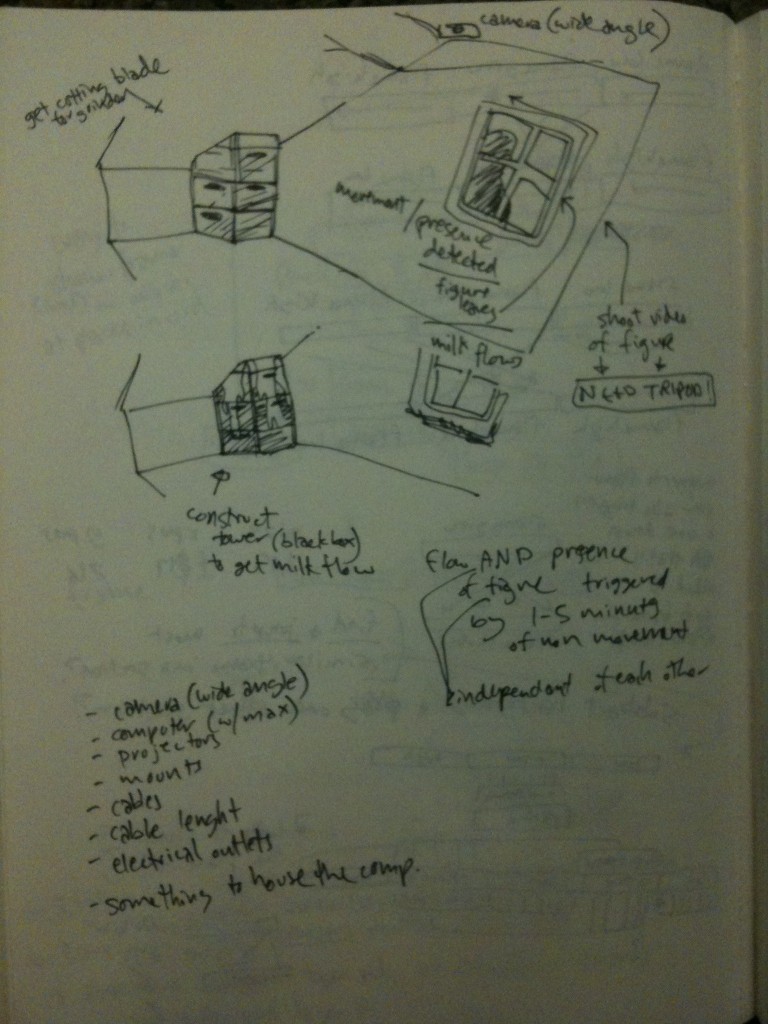 camera (wide angle)
get cutting blade
for grinder
movment / presence
detected
figure
leaves
milk flows
shoot video
of figure
NEED TRIPOD!
construct
tower (black box)
to get milk flow
flow AND presence
of figure triggered
by 1-5 minuts
of non movement
independant of each other
- camera (wide angle)
- computer (w/max)
- projectors
- mounts
- cables
- cable lenght
- electrical outlets
- something to house the comp.